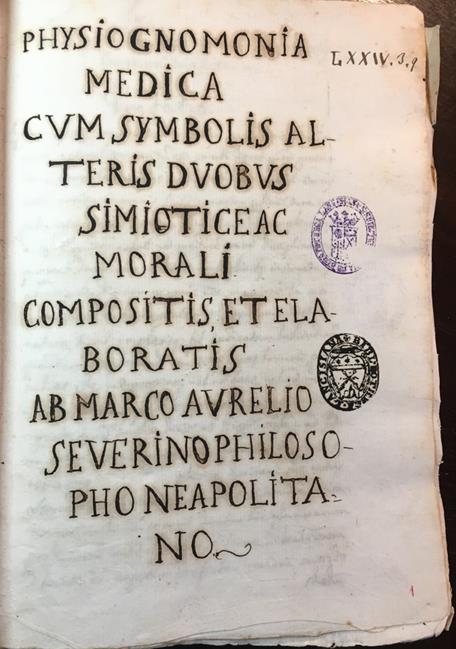 PHYSIOGNOMONIA
LXXIV.3.9
MEDICA
CVM SYMBOLIS AL-
TERIS DVOBVS
SIMIOTICE AC
MORALI
COMPOSITIS, ET ELA-
BORATIS
AB MARCO AVRELIO
SEVERINO PHILOSO-
PHO NEAPOLITA-
NO
1